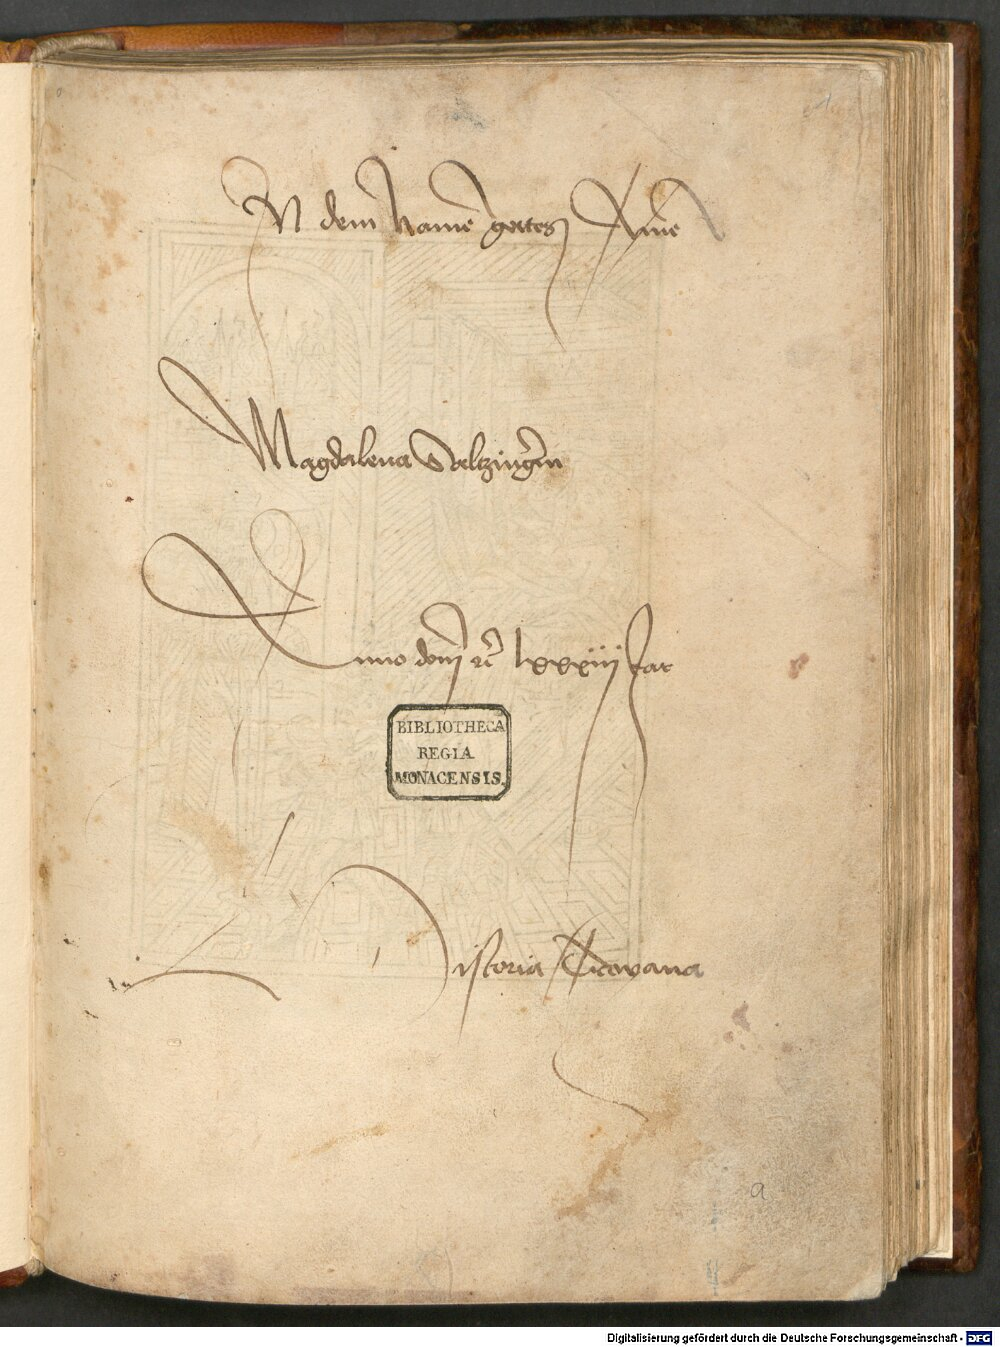 IN dem Namē gottes Amē
Magdalena Saltzingeri̅n
Anno domj ɾc̄ lxxxiiij Jar
BIBLIOTHECA
REGIA
MONACENSIS.
Historia Troyana
a
Digitalisierung gefördert durch die Deutsche Forschungsgemeinschaft - DFG